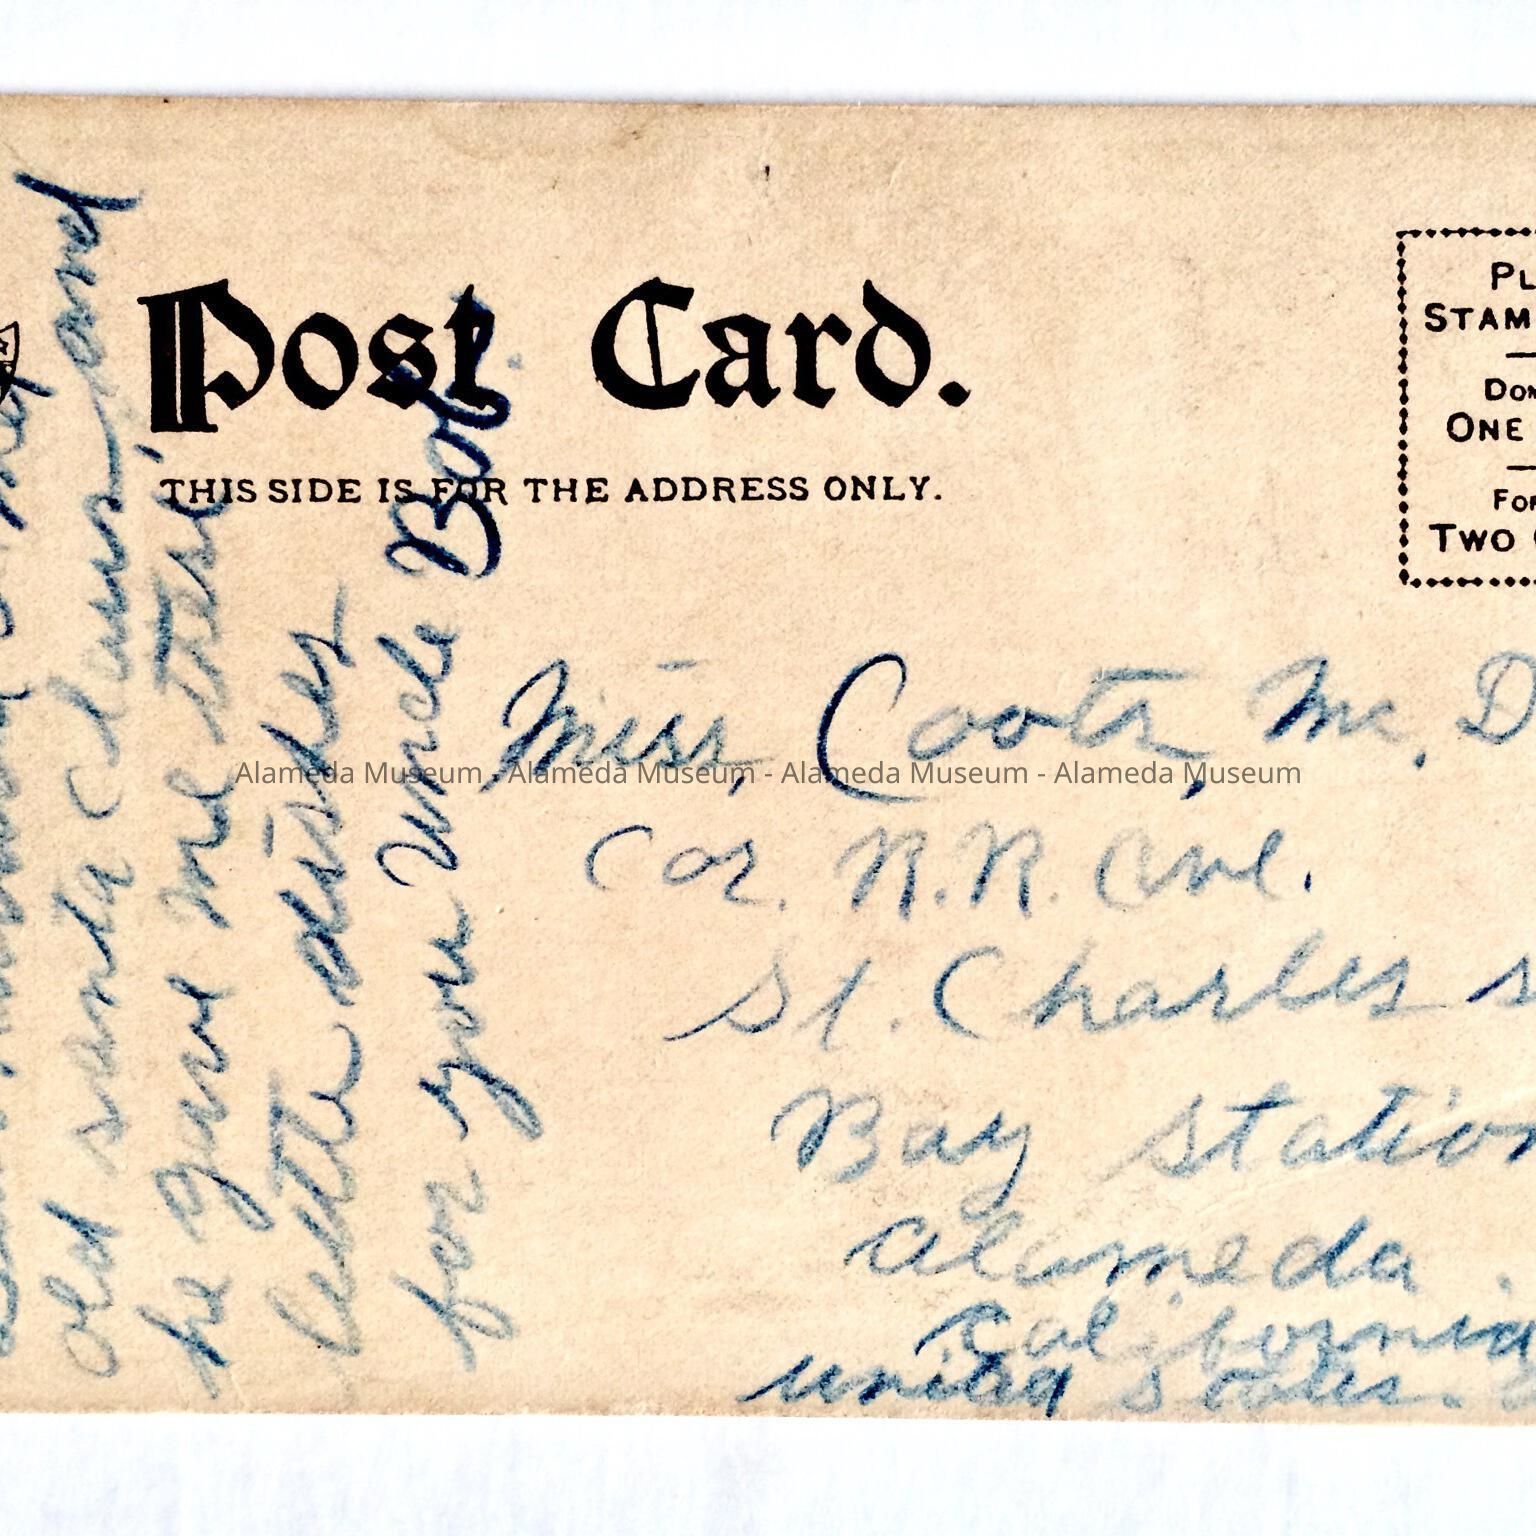 Post Card.
THIS SIDE IS FOR THE ADDRESS ONLY.
PL
STAM
DOM
ONE
FOR
TWO
Miss, Coots, Mc. D
Cor. R.R. Ave.
St. Charles s
Bay Station
Alameda.
California
United States.
Alameda Museum - Alameda Museum - Alameda Museum - Alameda Museum
old santa Claus and
he gave me these
little dishes
for you Uncle Bob.